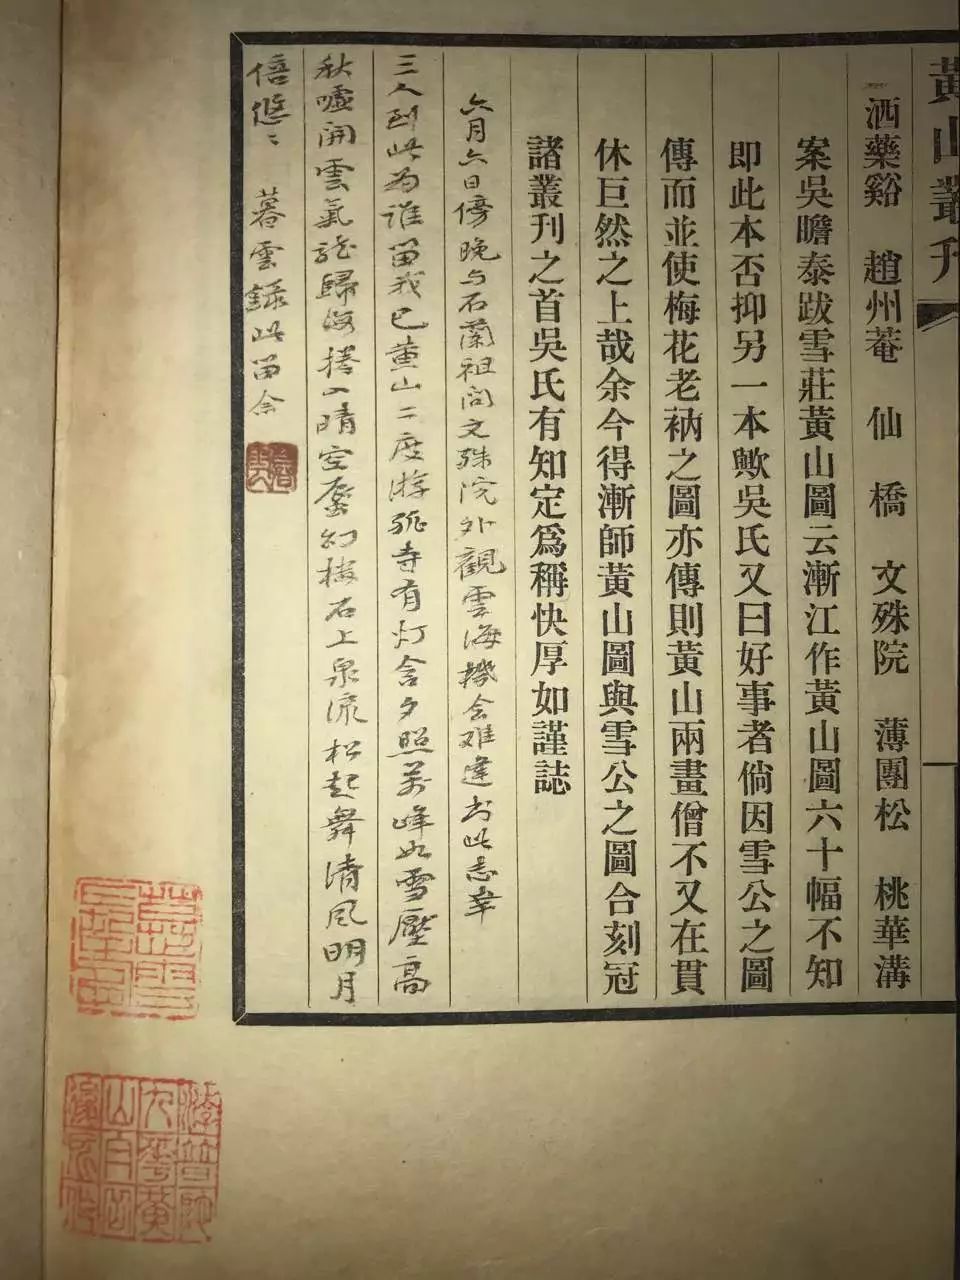 黃山叢刊
洒藥谿 趙州菴 仙橋 文殊院 薄團松 桃華溝
案吳瞻泰跋雪莊黃山圖云漸江作黃山圖六十幅不知
即此本否抑另一本歟吳氏又曰好事者倘因雪公之圖
傳而並使梅花老衲之圖亦傳則黃山兩畫僧不又在貫
休巨然之上哉余今得漸師黃山圖與雪公之圖合刻冠
諸叢刊之首吳氏有知定爲稱快厚如謹誌
六月六日傍晚与石蘭祖同文殊院外觀雲海機会难逢书此志幸
三人到此为谁留我已黄山二度游孤寺有灯含夕照万峰如雪壓高
秋嘘開雲氣龍歸海 入晴空蜃幻樓石上泉流松起舞清風明月
倍悠〻 暮雲錄此留念
九華黃
山白岳